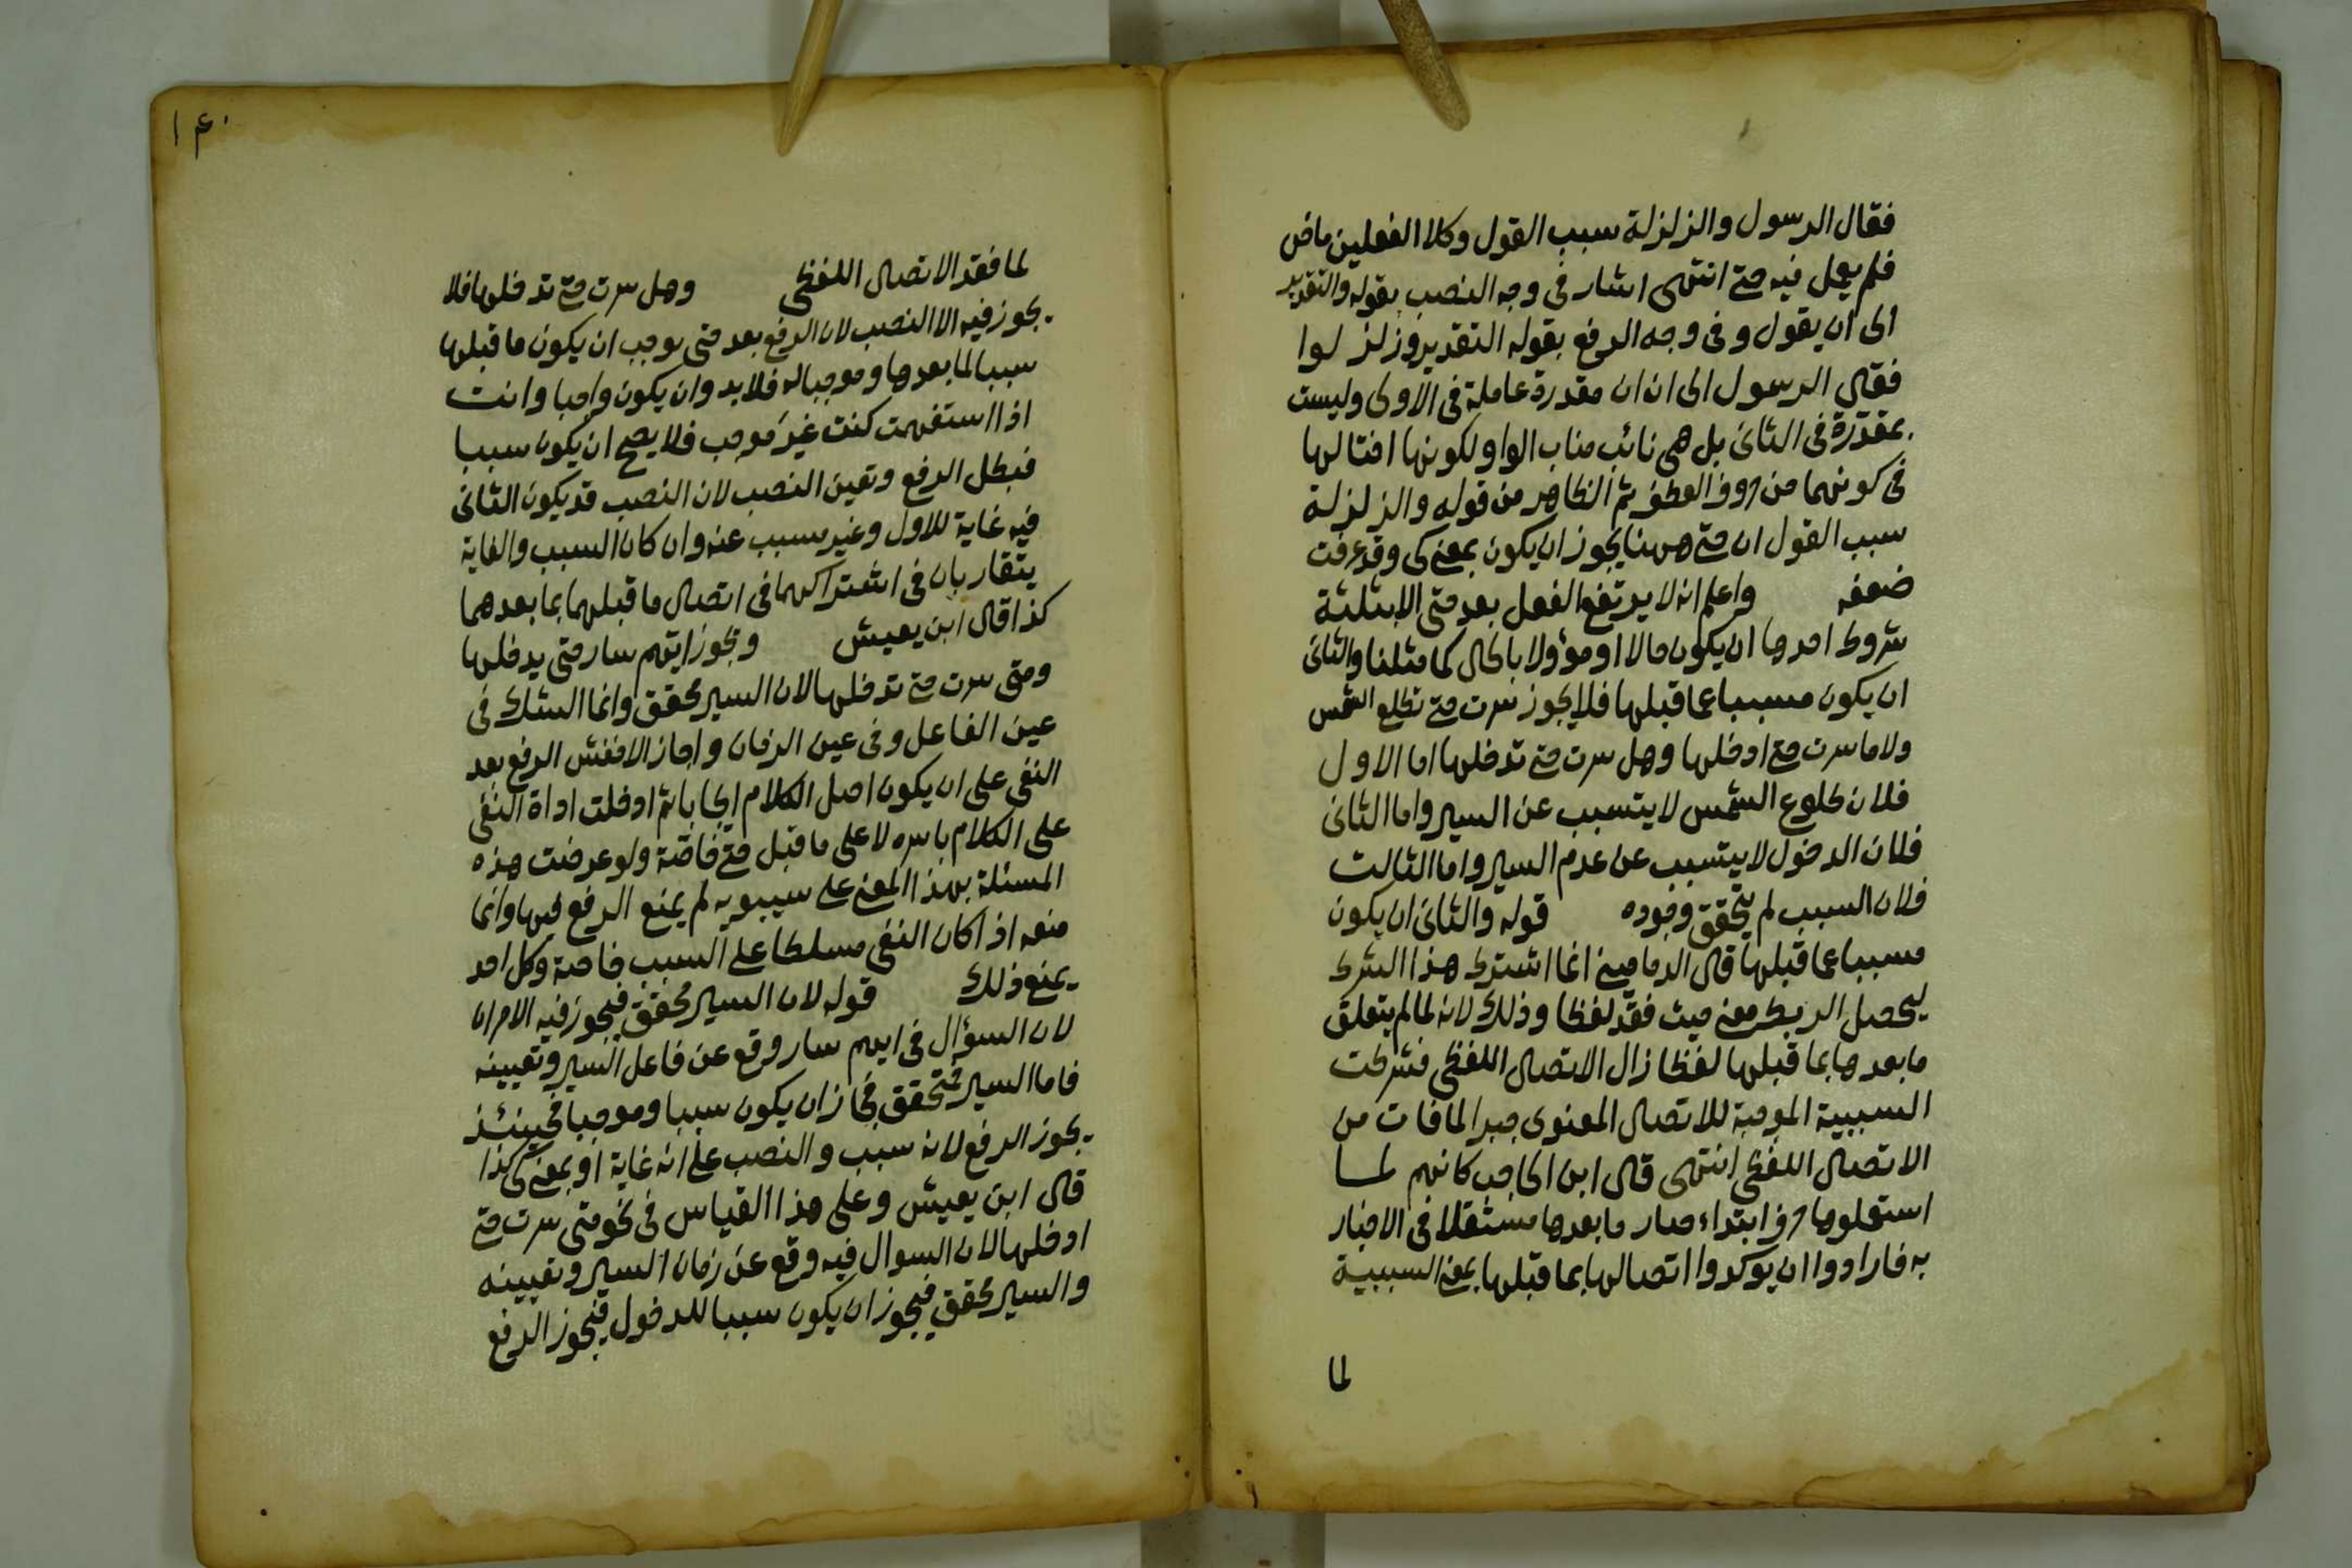 فقال الرسول والزلزلة سبب القول وكلا الفعلين ماض
فلم يعمل فيه حتى انتهى اشار فى وجه النصب بقوله والتقدير
الى ان يقول وفى وجه الرفع بقوله التقدير وزلزلوا
فقال الرسول الى ان ان مقدرة عاملة فى الاولى وليست
بمقدّرة فى الثانى بل هى نائب مناب الواو لكونها اختا لها
فى كونهما من حروف العطف ثم الظاهر من قوله والزلزلة
سبب القول ان حتى ههنا يجوز ان يكون بمعنى كى وقد عرفت
ضعفه واعلم انه لا يرتفع الفعل بعد حتى الا بثلثة
شروط احدها ان يكون حالا او مؤولا بالحال كما مثلنا والثانى
ان يكون مسببا عما قبلها فلا يجوز سرت حتى تطلع الشمس
ولا ما سرت حتى ادخلها وهل سرت حتى تدخلها اما الاول
فلان طلوع الشمس لا يتسبب عن السير واما الثانى
فلان الدخول لا يتسبب عن عدم السير واما الثالث
فلان السبب لم يتحقق وجوده قوله والثانى ان يكون
مسببا عما قبلها قال الدمامينى انما اشترط هذا الشرط
ليحصل الربط معنى حيث فقد لفظا وذلك لانه لما لم يتعلق
ما بعدها بما قبلها لفظا زال الاتصال اللفظى فشرطت
السببية الموجبة للاتصال المعنوى جبرا لما فات من
الاتصال اللفظى انتهى قال ابن الحاجب كانهم لما
استعملوها حرف ابتداء صار ما بعدها مستقلا فى الاخبار
به فارادوا ان يوكدوا اتصالها بما قبلها بمعنى السببية
لما
١٤٠
لما فقد الاتصال اللفظى وهل سرت حتى تدخلها فلا
يجوز فيه الا النصب لان الرفع بعد حتى يوجب ان يكون ما قبلها
سببا لما بعدها وموجبا له فلا بد وان يكون واجبا وانت
اذا استفهمت كنت غير موجب فلا يصح ان يكون سببا
فبطل الرفع وتعين النصب لان النصب قد يكون الثانى
فيه غاية للاول وغير مسبب عنه وان كان السبب والغاية
يتقاربان فى اشتراكهما فى اتصال ما قبلهما بما بعدهما
كذا قال ابن يعيش ويجوز ايّهم سار حتى يدخلها
ومتى سرت حتى تدخلها لان السير محقق وانما الشك فى
عين الفاعل وفى عين الزمان واجاز الاخفش الرفع بعد
النفى على ان يكون اصل الكلام ايجابا ثم ادخلت اداة النفى
على الكلام باسره لا على ما قبل حتى خاصّة ولو عرضت هذه
المسئلة بهذا المعنى على سيبويه لم يمنع الرفع فيها وانما
منعه اذا كان النفى مسلطا على السبب خاصة وكل احد
يمنع ذلك قوله لان السير محقق فيجوز فيه الامران
لان السؤال فى ايهم سار وقع عن فاعل السير وتعيينه
فاما السير فمتحقق فجاز ان يكون سببا وموجبا فحينئذ
يجوز الرفع لانه سبب والنصب على انه غاية او بمعنى كى كذا
قال ابن يعيش وعلى هذا القياس فى نحو متى سرت حتى
ادخلها لان السوال فيه وقع عن زمان السير وتعيينه
والسير محقق فيجوز ان يكون سببا للدخول فيجوز الرفع